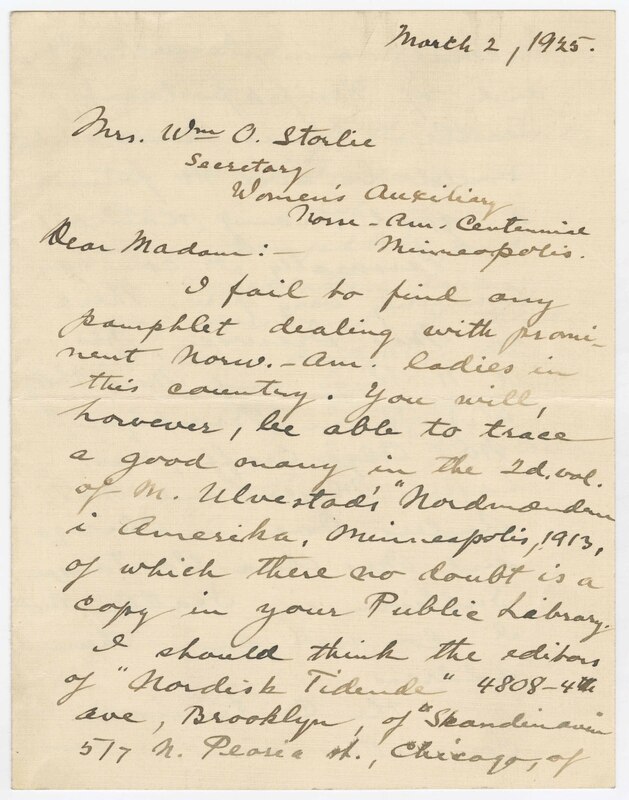 March 2, 1925.
Mrs. Wm O. Storlie
Secretary
Women's Auxiliary
Norse-Am. Centennial
Minneapolis.
Dear Madam:-
I fail to find any
pamphlet dealing with promi-
nent Norw.-Am. ladies in
this country. You will,
however, be able to trace
a good many in the 2d. vol.
of M. Ulvestad's "Nordmændene
i Amerika, Minneapolis, 1913,
of which there no doubt is a
copy in your Public Library.
I should think the editors
of "Nordisk Tidende" 4808-4th
ave, Brooklyn, of "Skandinaven
517 N. Peoria st., Chicago, of